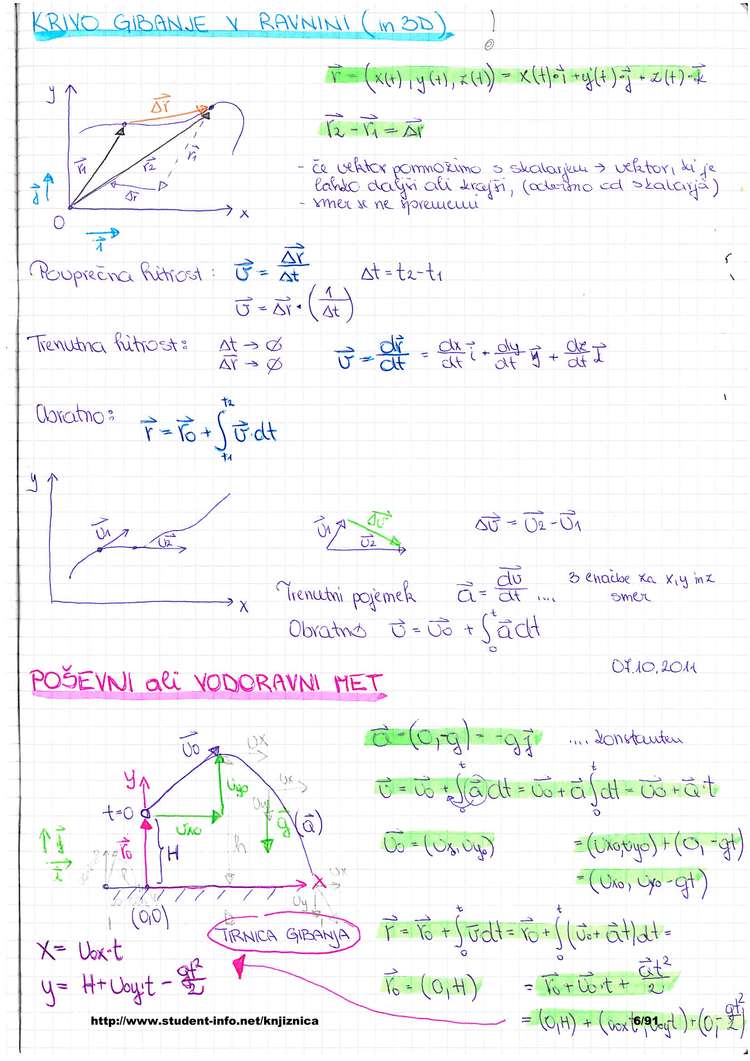 KRIVO GIBANJE V RAVNINI (in 3D)
!
r⃗ = (x(t), y(t), z(t)) = x(t)·i⃗ + y(t)·j⃗ + z(t)·k⃗
y
Δr⃗
r⃗1
r⃗2
r⃗1
Δr⃗
j⃗
0
i⃗
x
r⃗2 - r⃗1 = Δr⃗
- če vektor pomnožimo s skalarjem → vektor, ki je
lahko daljši ali krajši, (odvisno od skalarja)
- smer se ne spremeni
Povprečna hitrost: v⃗ = Δr⃗/Δt Δt = t2 - t1
v⃗ = Δr⃗ · (1/Δt)
Trenutna hitrost: Δt → 0
Δr⃗ → 0
v⃗ = dr⃗/dt = dx/dt i⃗ + dy/dt j⃗ + dz/dt
Obratno: r⃗ = r⃗0 + ∫t1t2 v⃗·dt
y
v⃗1
v⃗2
x
v⃗1
Δv⃗
v⃗2
Δv⃗ = v⃗2 - v⃗1
Trenutni pojemek a⃗ = dv⃗/dt .... 3 enačbe za x, y in z
smer
Obratno v⃗ = v⃗0 + ∫0t a⃗ dt
07.10.2011
POŠEVNI ali VODORAVNI MET
a⃗ = (0, -g) = -g j⃗ .... konstanten
v⃗ = v⃗0 + ∫0t a⃗ dt = v⃗0 + a⃗ ∫0t dt = v⃗0 + a⃗·t
v⃗0
vx
y
vy0
vx
t=0
vx0
vy
g⃗
(a⃗)
j⃗
i⃗
r⃗0
H
h
vx
x
vy
(0,0)
= (vx0, vy0) + (0, -gt)
= (vx0, vy0 - gt)
TIRNICA GIBANJA
r⃗ = r⃗0 + ∫0t v⃗ dt = r⃗0 + ∫0t (v⃗0 + a⃗t) dt =
x = v0x·t
r⃗0 = (0, H) = r⃗0 + v⃗0·t + a⃗t²/2
y = H + v0y·t - gt²/2
= (0, H) + (v0xt, v0yt) + (0, -gt²/2)
http://www.student-info.net/knjiznica
6/91